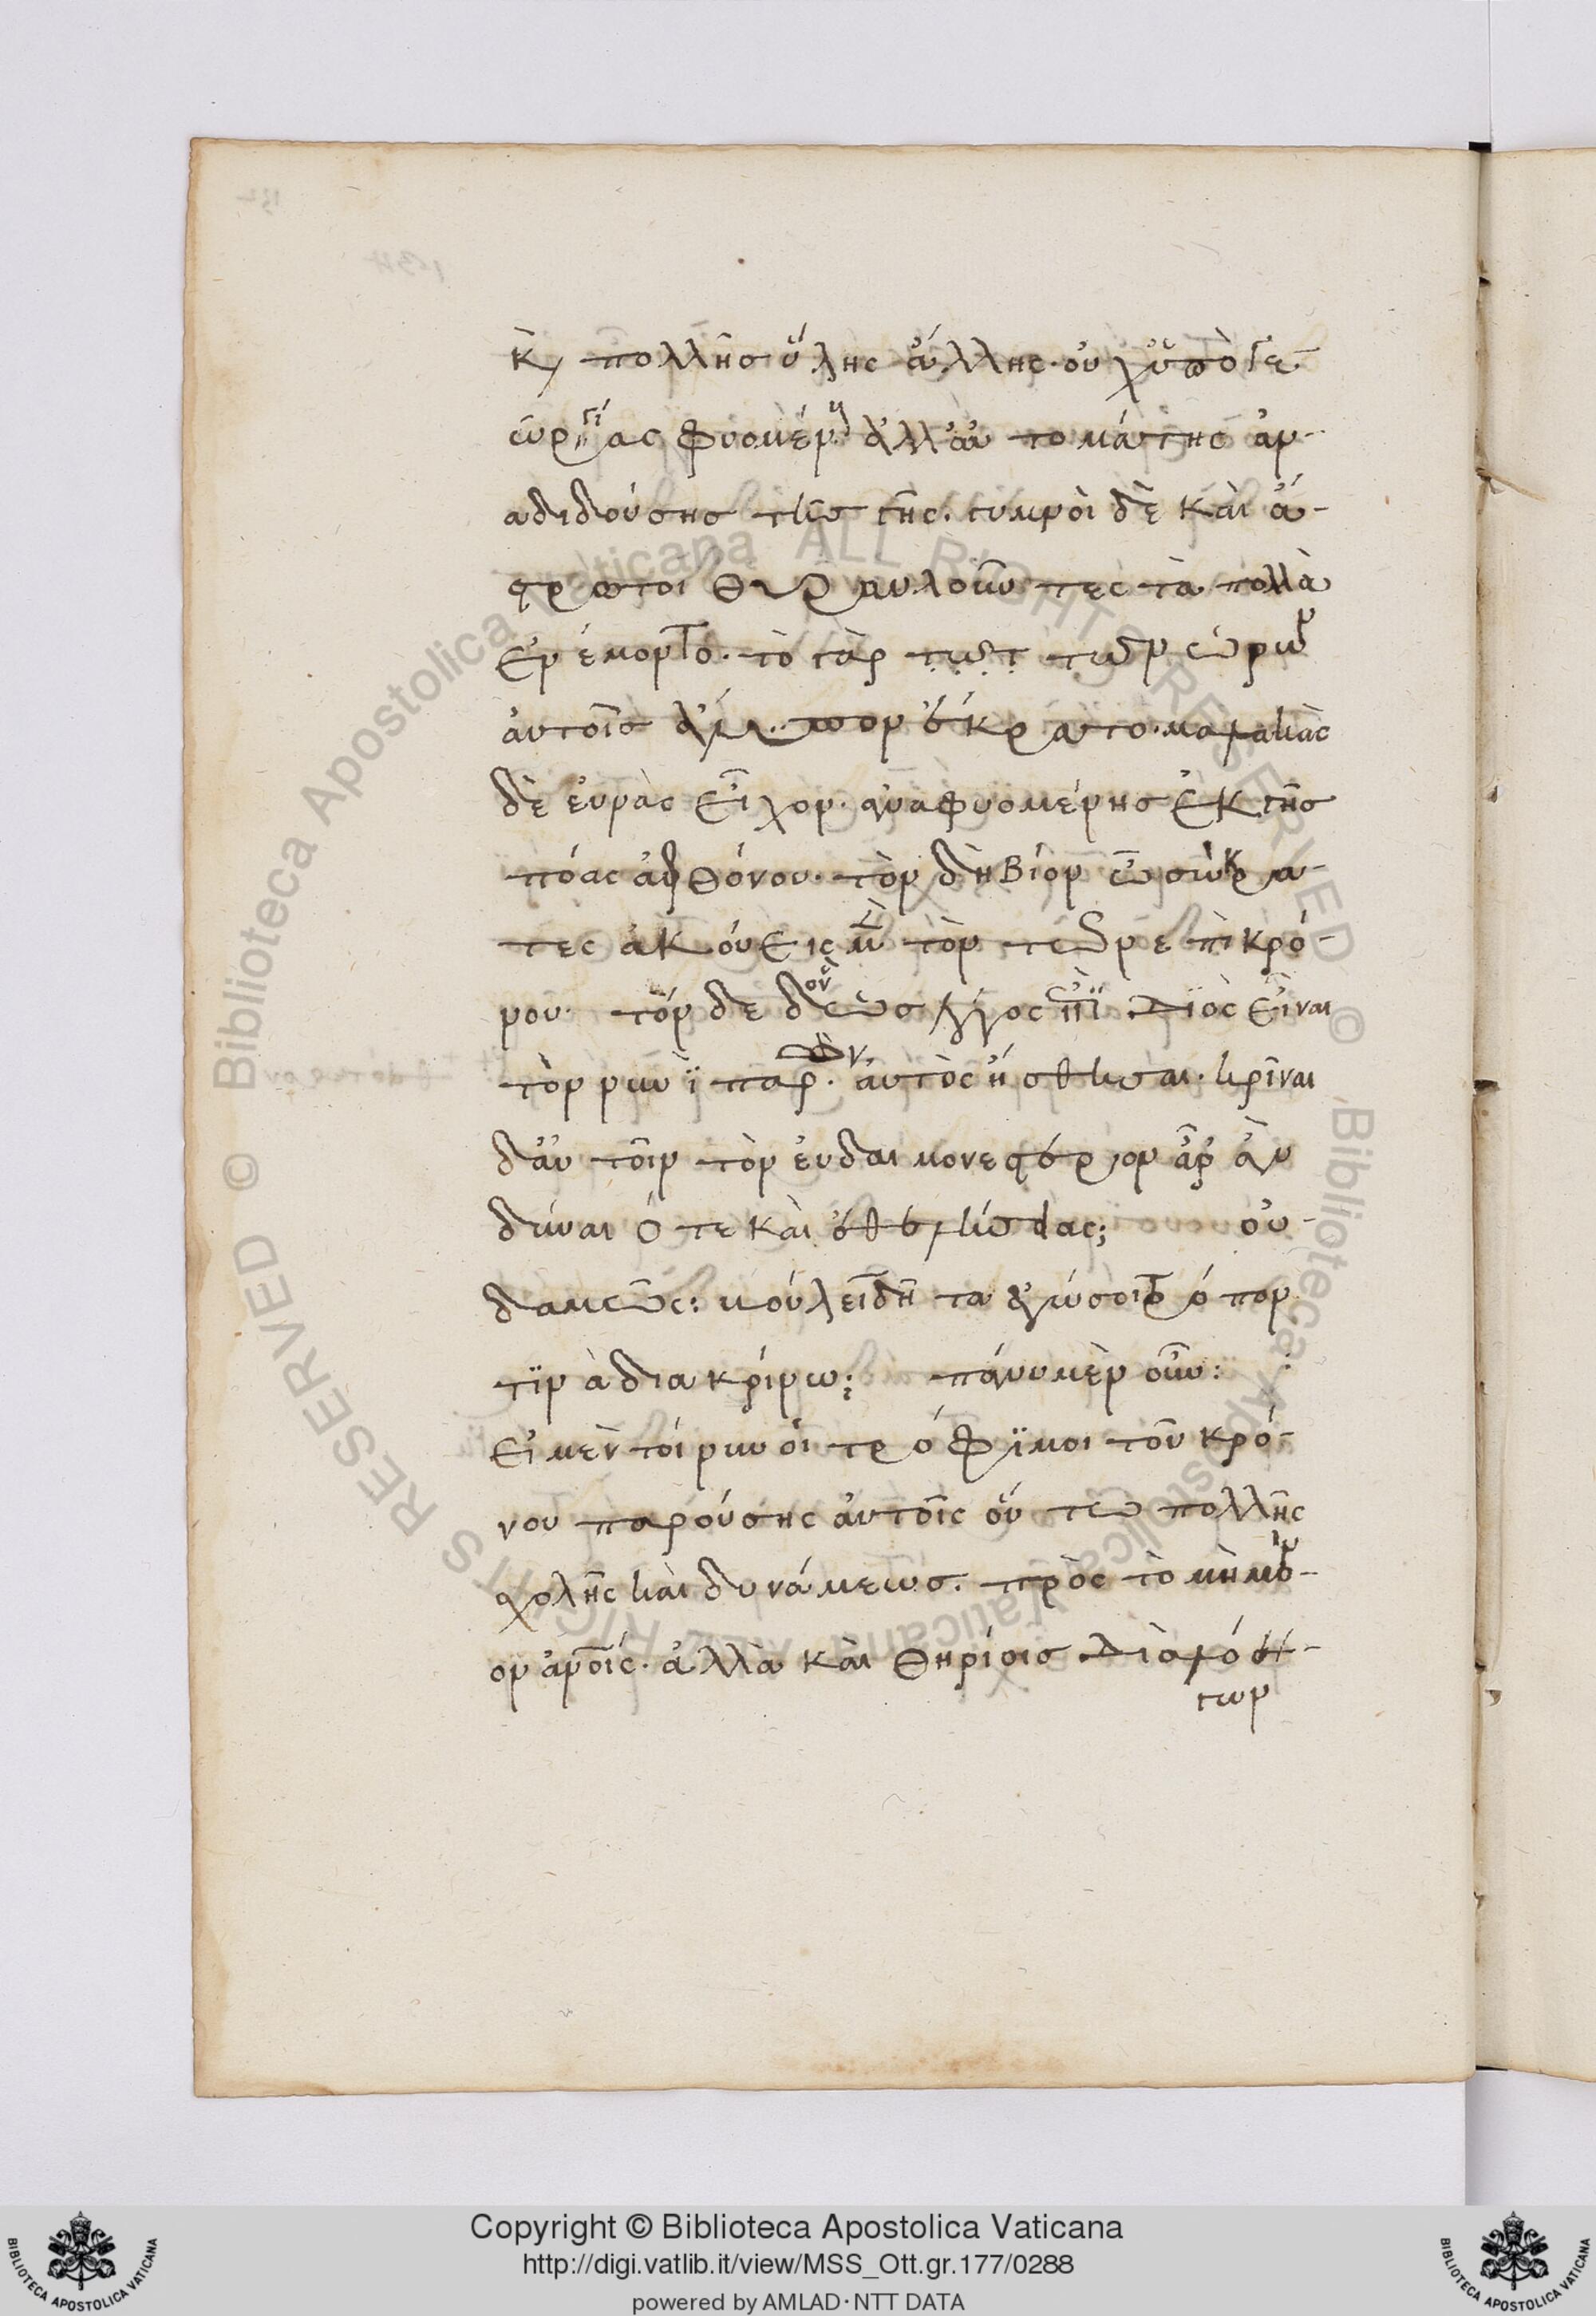 κ(αὶ) πολλῆς ὕλης ἄλλης· οὐχ ὑπὸ γε
ωργίας φυομένης ἀλλ' αὐτομάτης ἀν-
αδιδούσης τῆς γῆς. γυμνοὶ δὲ καὶ ἄ-
στρωτοι θυραυλοῦντες τὰ πολλὰ
ἐνέμοντο. τὸ γὰρ τῶν ὡρῶν
αὐτοῖς ἄλυπον ἐκέκρατο. μαλακὰς
δὲ εὐνὰς εἶχον. ἀναφυομένης ἐκ γῆς
πόας ἀφθόνου. τὸν δὴ βίον ὦ σώκρα-
τες ἀκούεις μὲν τὸν τῶν ἐπὶ κρό-
νου· τόνδε δὲ ὃν ὡς λόγος ἐπὶ διὸς εἶναι
τὸν νυνὶ παρὼν. αὐτὸς ἤσθησαι. κρῖναι
δ' αὐτοῖν τὸν εὐδαιμονέστερον ἆρ' ἂν
δύναιό τε καὶ ἐθελήσειας; οὐ-
δαμῶς: βούλει δῆτα ἐγώ σοι τρόπον
τινὰ διακρίνω; πάνυ μὲν οὖν:
Εἰ μὲν τοίνυν οἱ τρόφιμοι τοῦ κρό-
νου παρούσης αὐτοῖς οὕτω πολλῆς
σχολῆς καὶ δυνάμεως. πρὸς τὸ μὴ μόν-
ον ἀνοις. ἀλλὰ καὶ θηρίοις διὰ λό-
γων